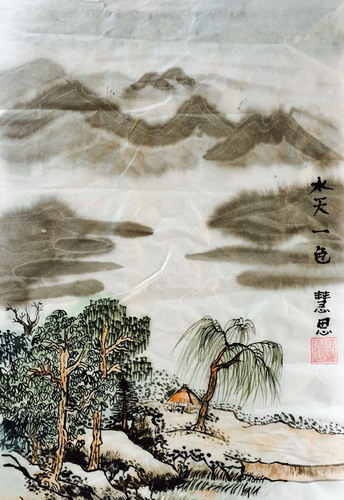 水天一色
慧思